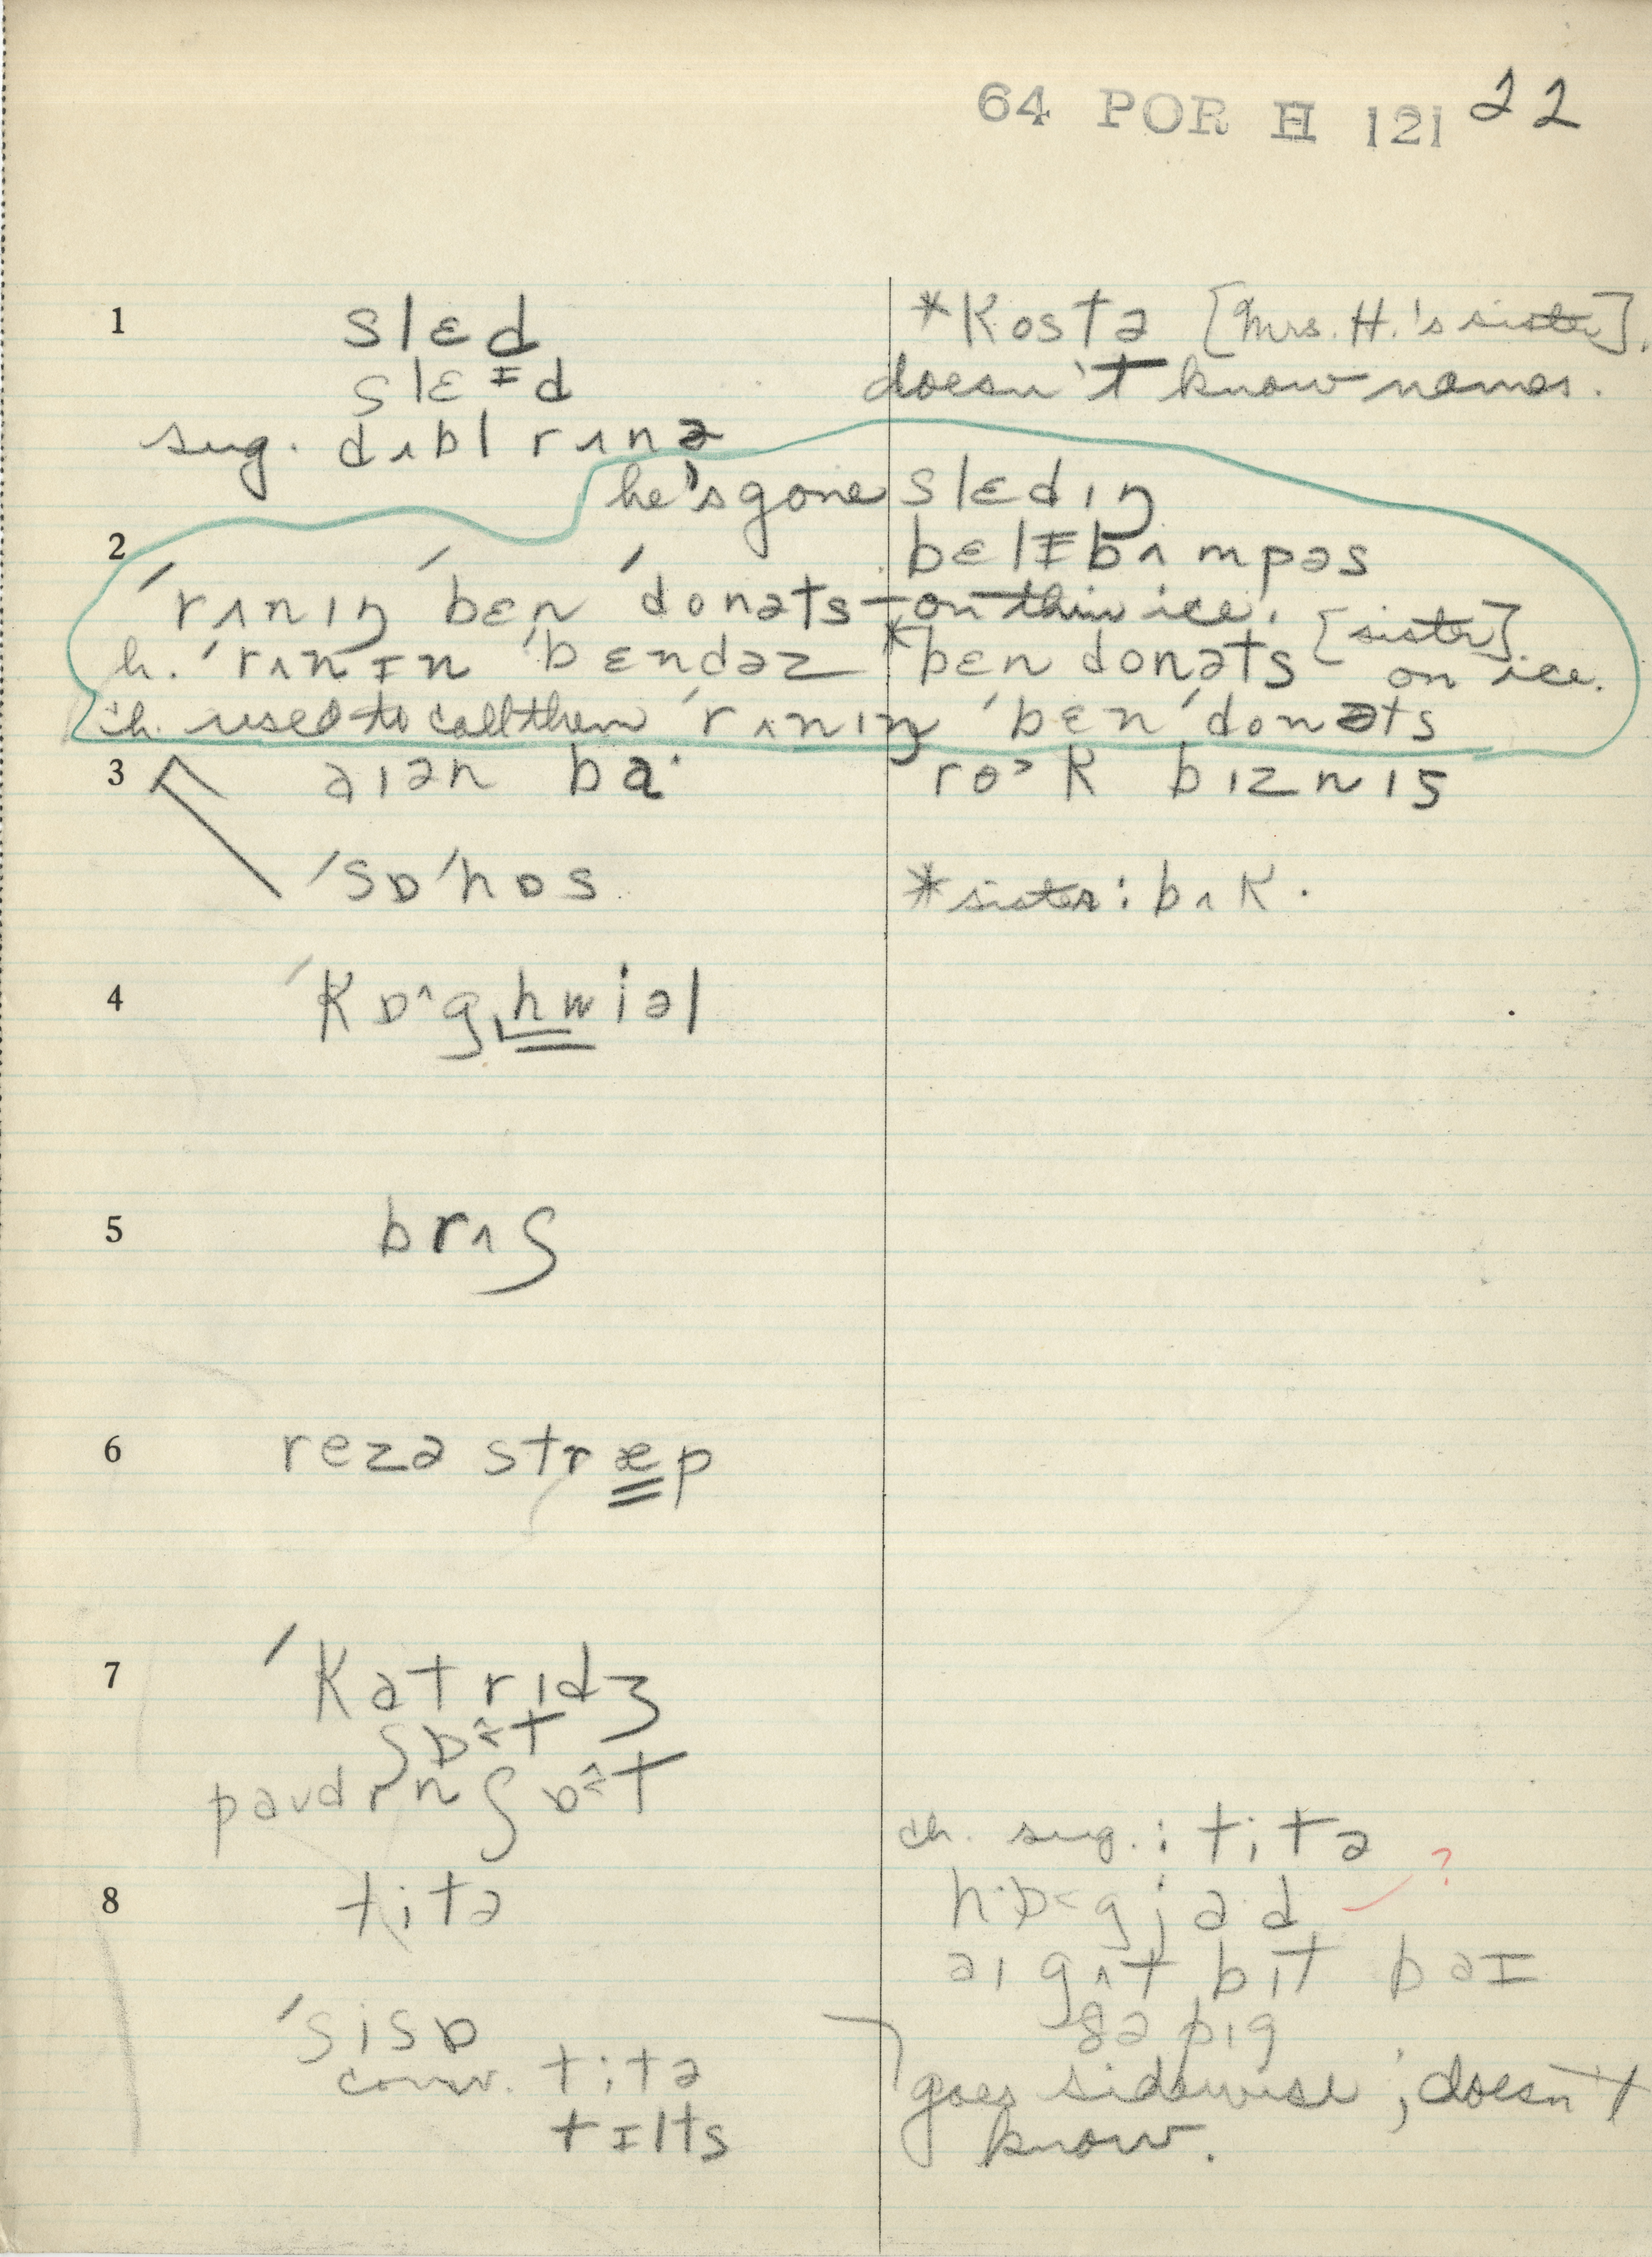 64 POR H 121 22
1 slɛd *Kostə [Mrs. H.'s sister].
slɛɪd doesn't know names.
sug. dʌbl rʌnə
he's gone slɛdɪŋ
2 bɛlɪbʌmpəs
ˈrʌnɪŋ ˈbɛn ˈdonəts – on thin ice.
h. ˈrʌnɪn ˈbɛndəz *bɛn donəts [sister] on ice.
ch. used to call them ˈrʌnɪŋ ˈbɛn ˈdonəts
3 aɪən ba· ro˃k bɪznɪs
ˈsɒˈhɒs *sister: bʌk.
4 ˈkɒ^g,hwiəl
5 brʌʃ
6 rezə stræp
7 ˈkatrɪdʒ
ʃɒ^t
paʊdr n ʃɒ^t
ch. sug.: titə
8 titə hɒ˂gjad ?
aɪ gʌt bɪt baɪ
ðə pɪg
ˈsisɒ
conv. titə goes sidewise; doesn't
tɪlts know.